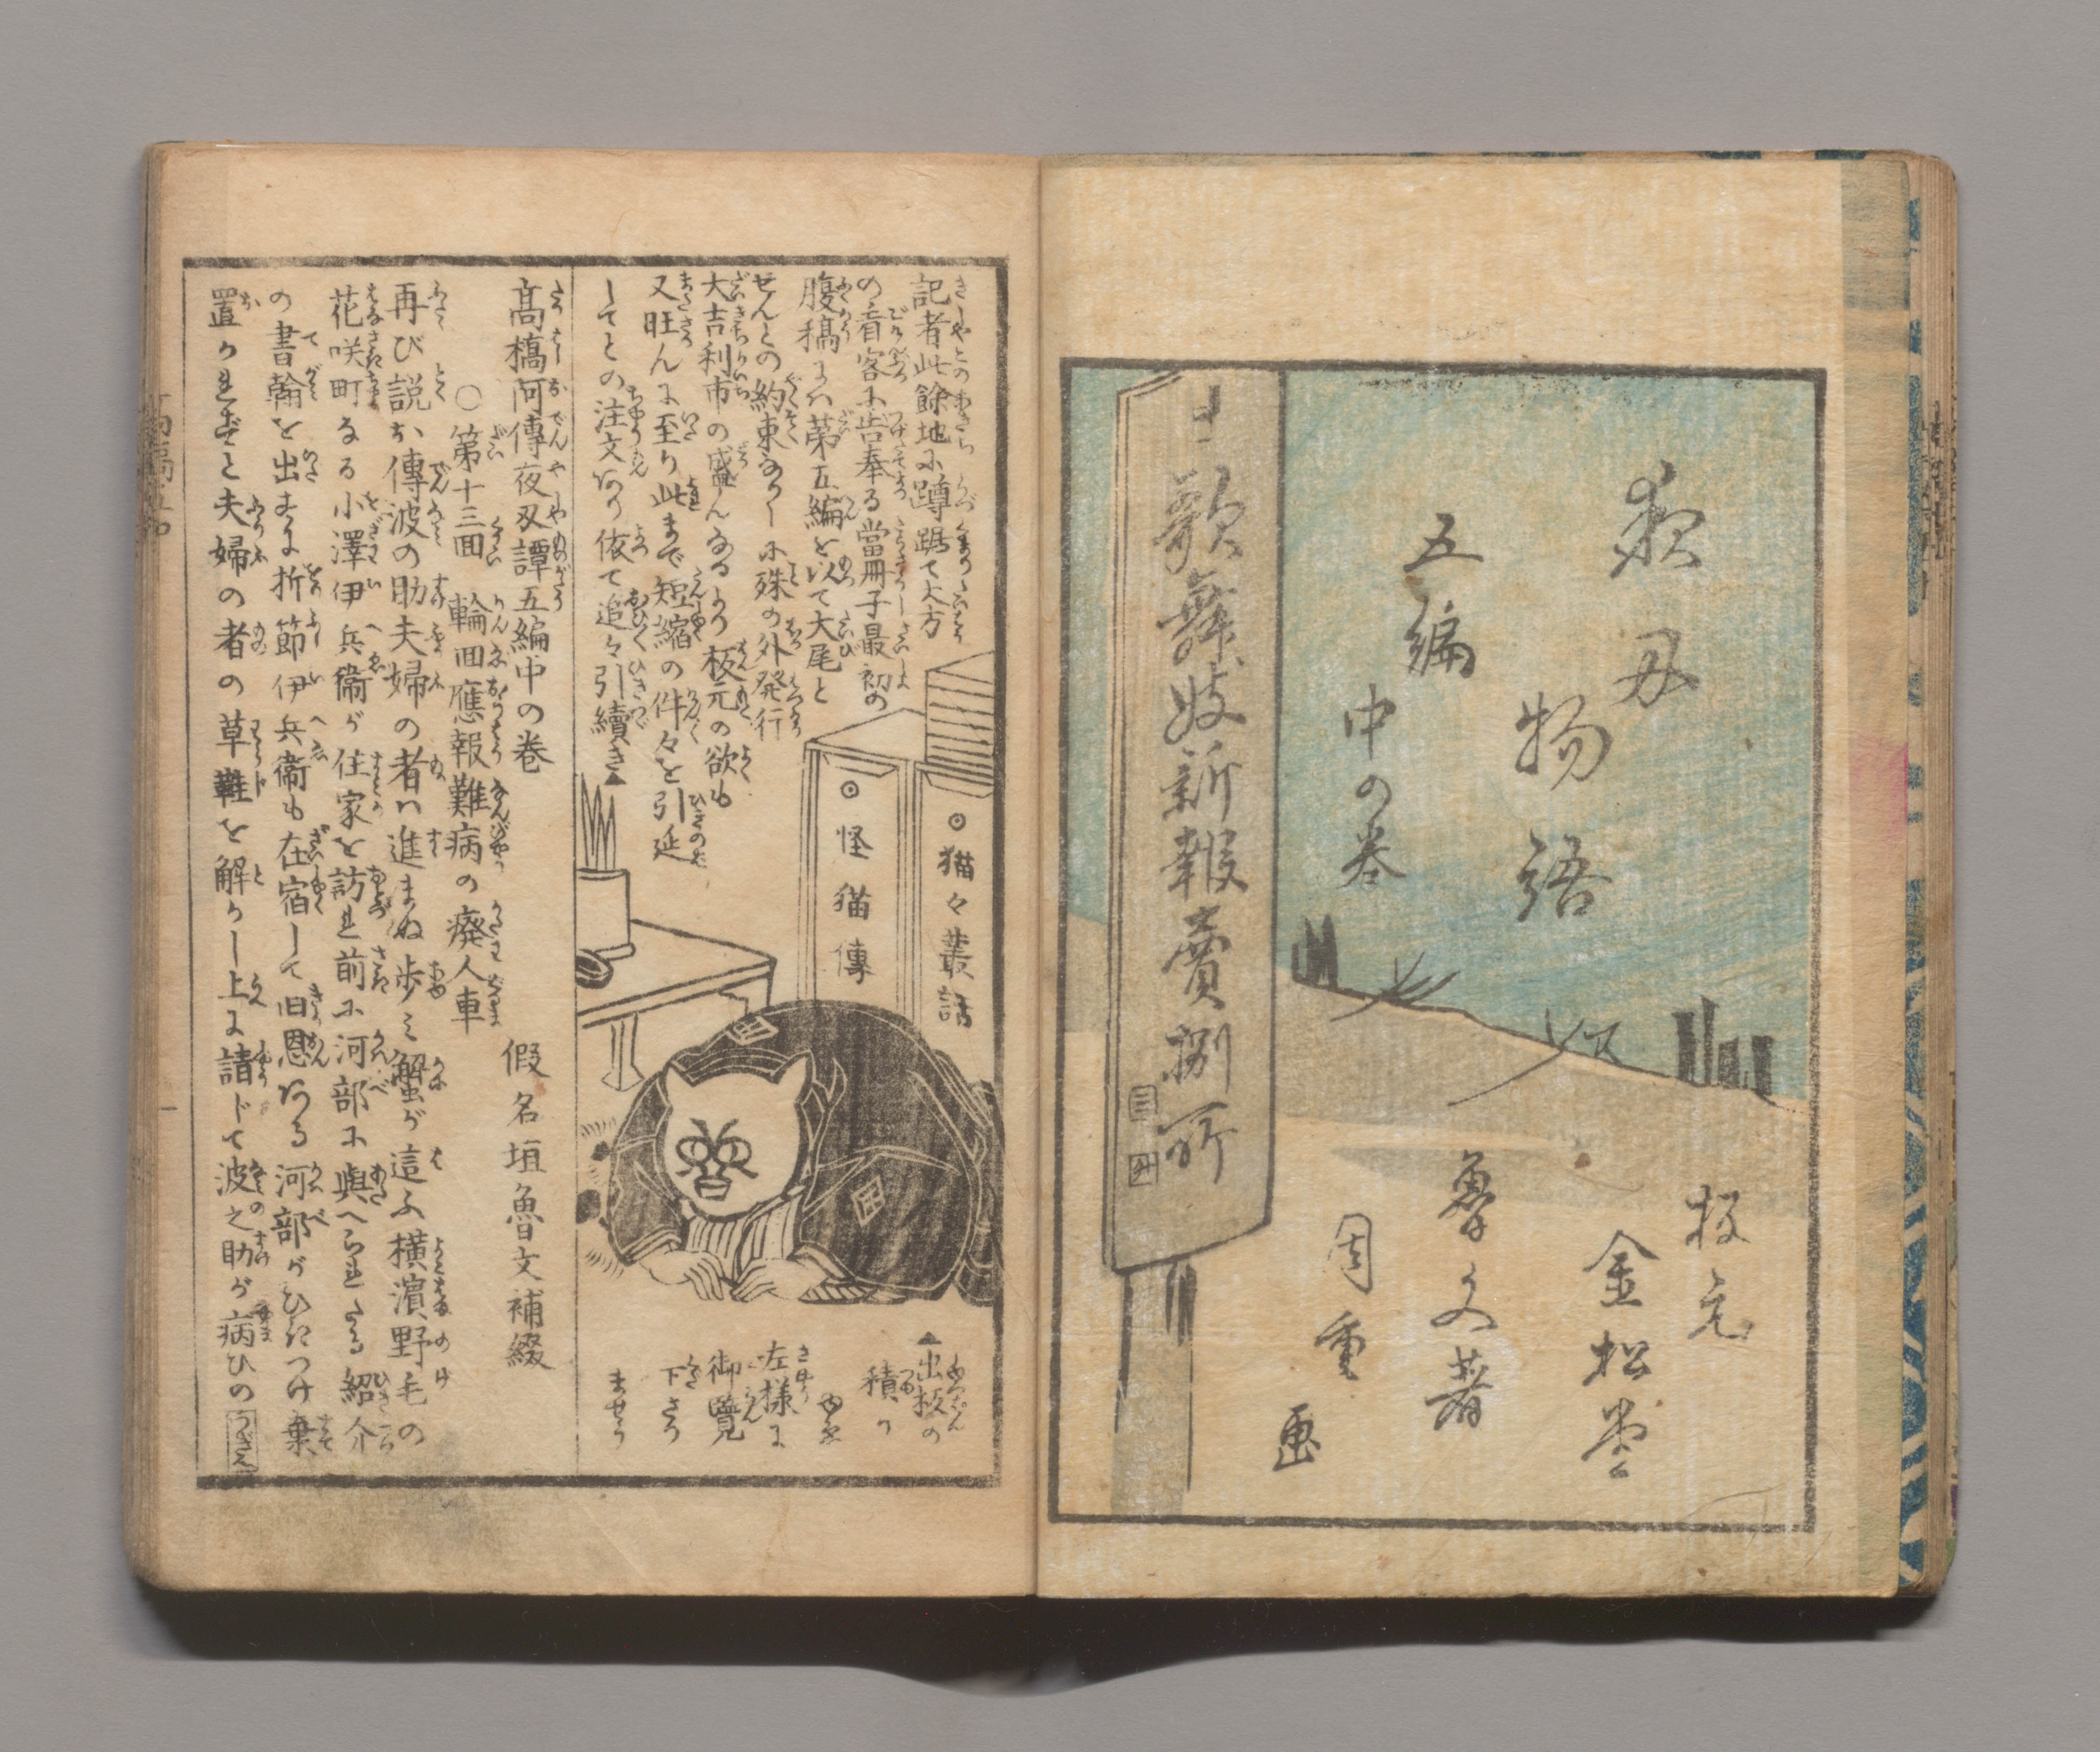 夜叉
物語
五編
中の巻
歌舞妓新報賣捌所
板元
金松堂
魯文著
周重画
記者此餘地に蹲踞て大方
の看客に告奉る當冊子最初の
腹稿にハ第五編を以て大尾と
せんとの約束なりしに殊の外発行
大吉利市の盛んなるより板元の欲も
又旺んに至り此まで短縮の件々を引延
してとの注文あり依て追々引續き▲
▲出板の
積り
ゆゑ
左様に
御覽
下さり
ませう
⦿猫々叢話
⦿怪猫傳
高橋阿傳夜刄譚五編中の巻
假名垣魯文補綴
○第十三回 輪回應報難病の癈人車
再び説お傳波の助夫婦の者ハ進まぬ歩ミ蟹が這ふ横濱野毛の
花咲町なる小澤伊兵衞が住家を訪れ前に河部に與へられたる紹介
の書翰を出すに折節伊兵衞も在宿して旧恩ある河部がひきつけ棄
置かれずと夫婦の者の草鞋を解かし上に請じて波之助が病ひの